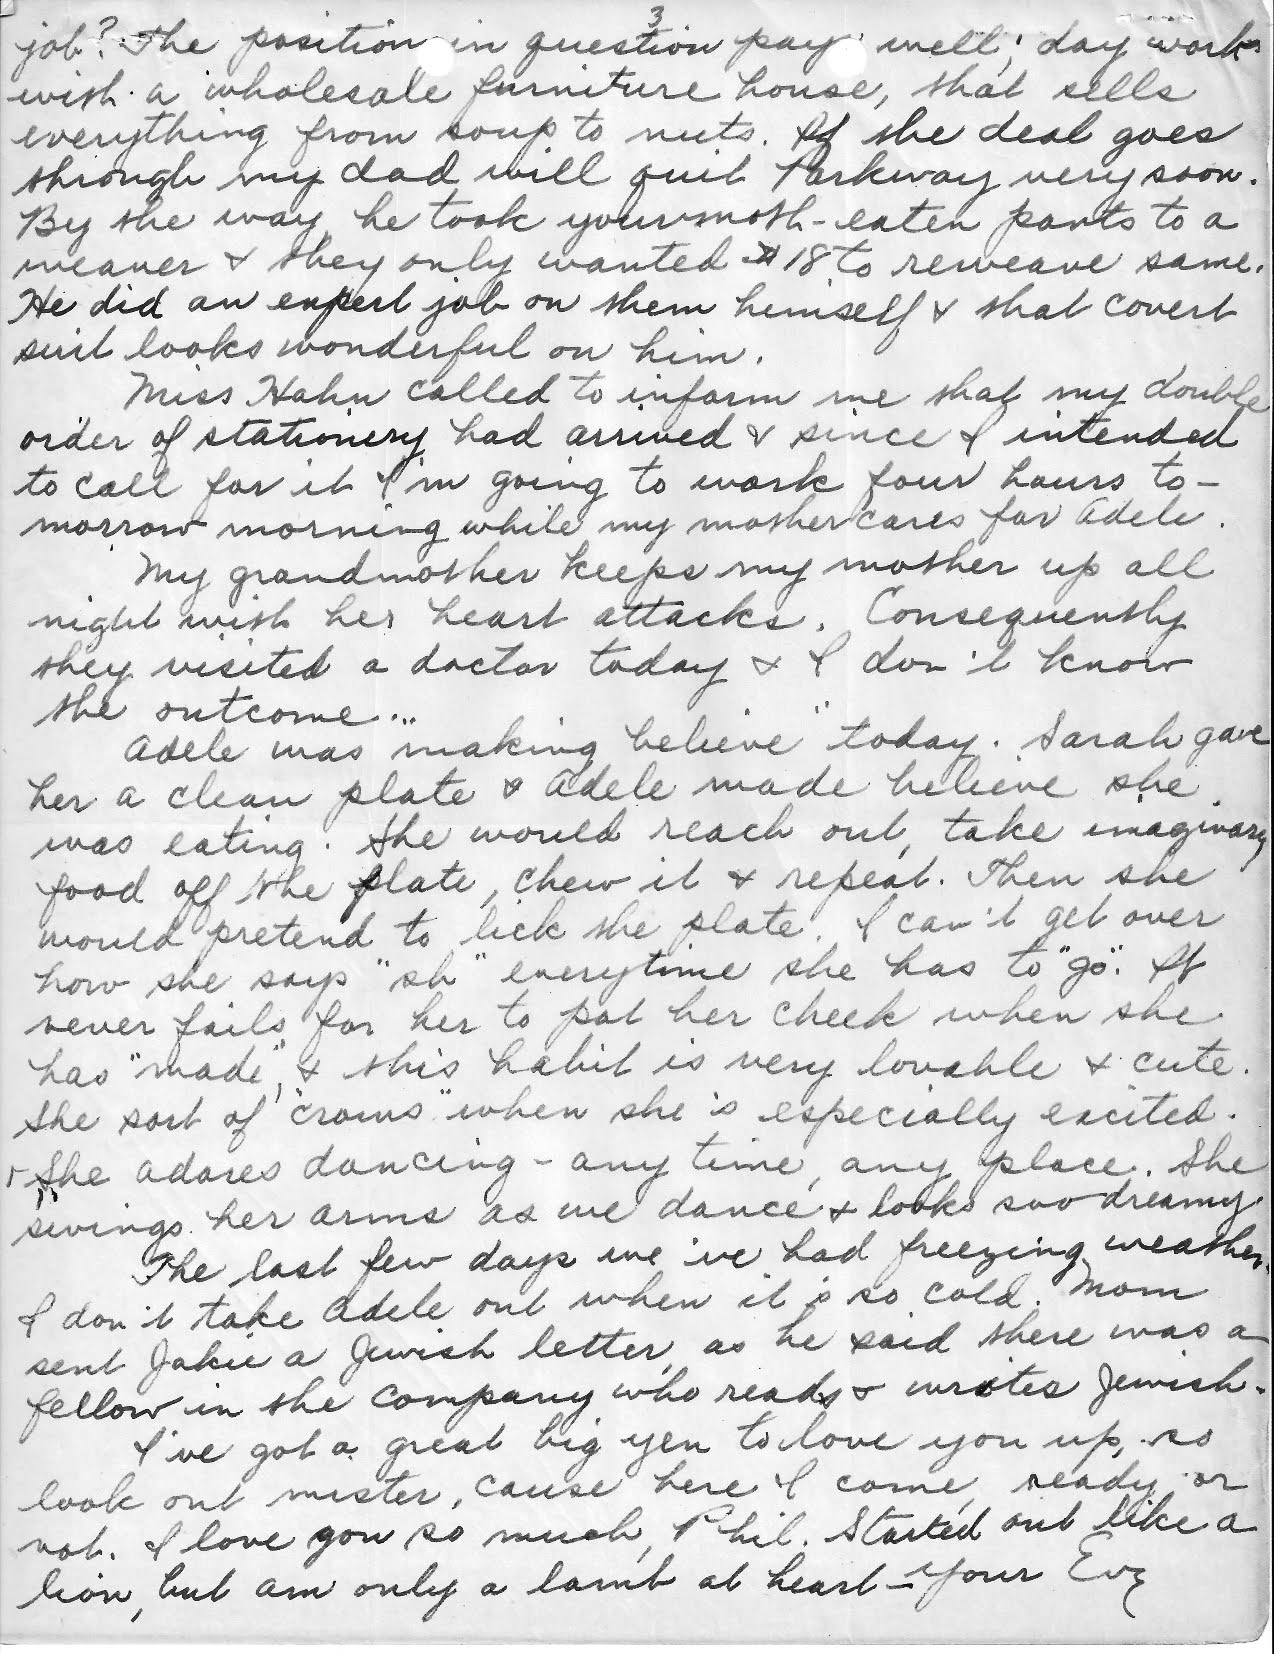 3
job? The position in question pays well, day work
with a wholesale furniture house, that sells
everything from soup to nuts. If the deal goes
through my dad will quit Parkway very soon.
By the way, he took your moth-eaten pants to a
weaver & they only wanted $18 to reweave same.
He did an expert job on them himself & that covert
suit looks wonderful on him.
Miss Hahn called to inform me that my double
order of stationery had arrived & since I intended
to call for it I'm going to work four hours to-
morrow morning while my mother cares for Adele.
My grandmother keeps my mother up all
night with her heart attacks. Consequently
they visited a doctor today & I don't know
the outcome...
Adele was "making believe" today. Sarah gave
her a clean plate & Adele made believe she
was eating. She would reach out, take imaginary
food off the plate, chew it & repeat. Then she
would pretend to lick the plate. I can't get over
how she says "sh" everytime she has to "go". It
never fails for her to pat her cheek when she
has "made", & this habit is very lovable & cute.
She sort of "crows" when she's especially excited.
She adores dancing - any time, any place. She
swings her arms as we dance & looks soo dreamy.
The last few days we've had freezing weather.
I don't take Adele out when it is so cold. Mom
sent Jakie a Jewish letter, as he said there was a
fellow in the company who reads & writes Jewish.
I've got a great big yen to love you up, so
look out mister, cause here I come, ready or
not. I love you so much, Phil. Started out like a
lion, but am only a lamb at heart - Your Eve